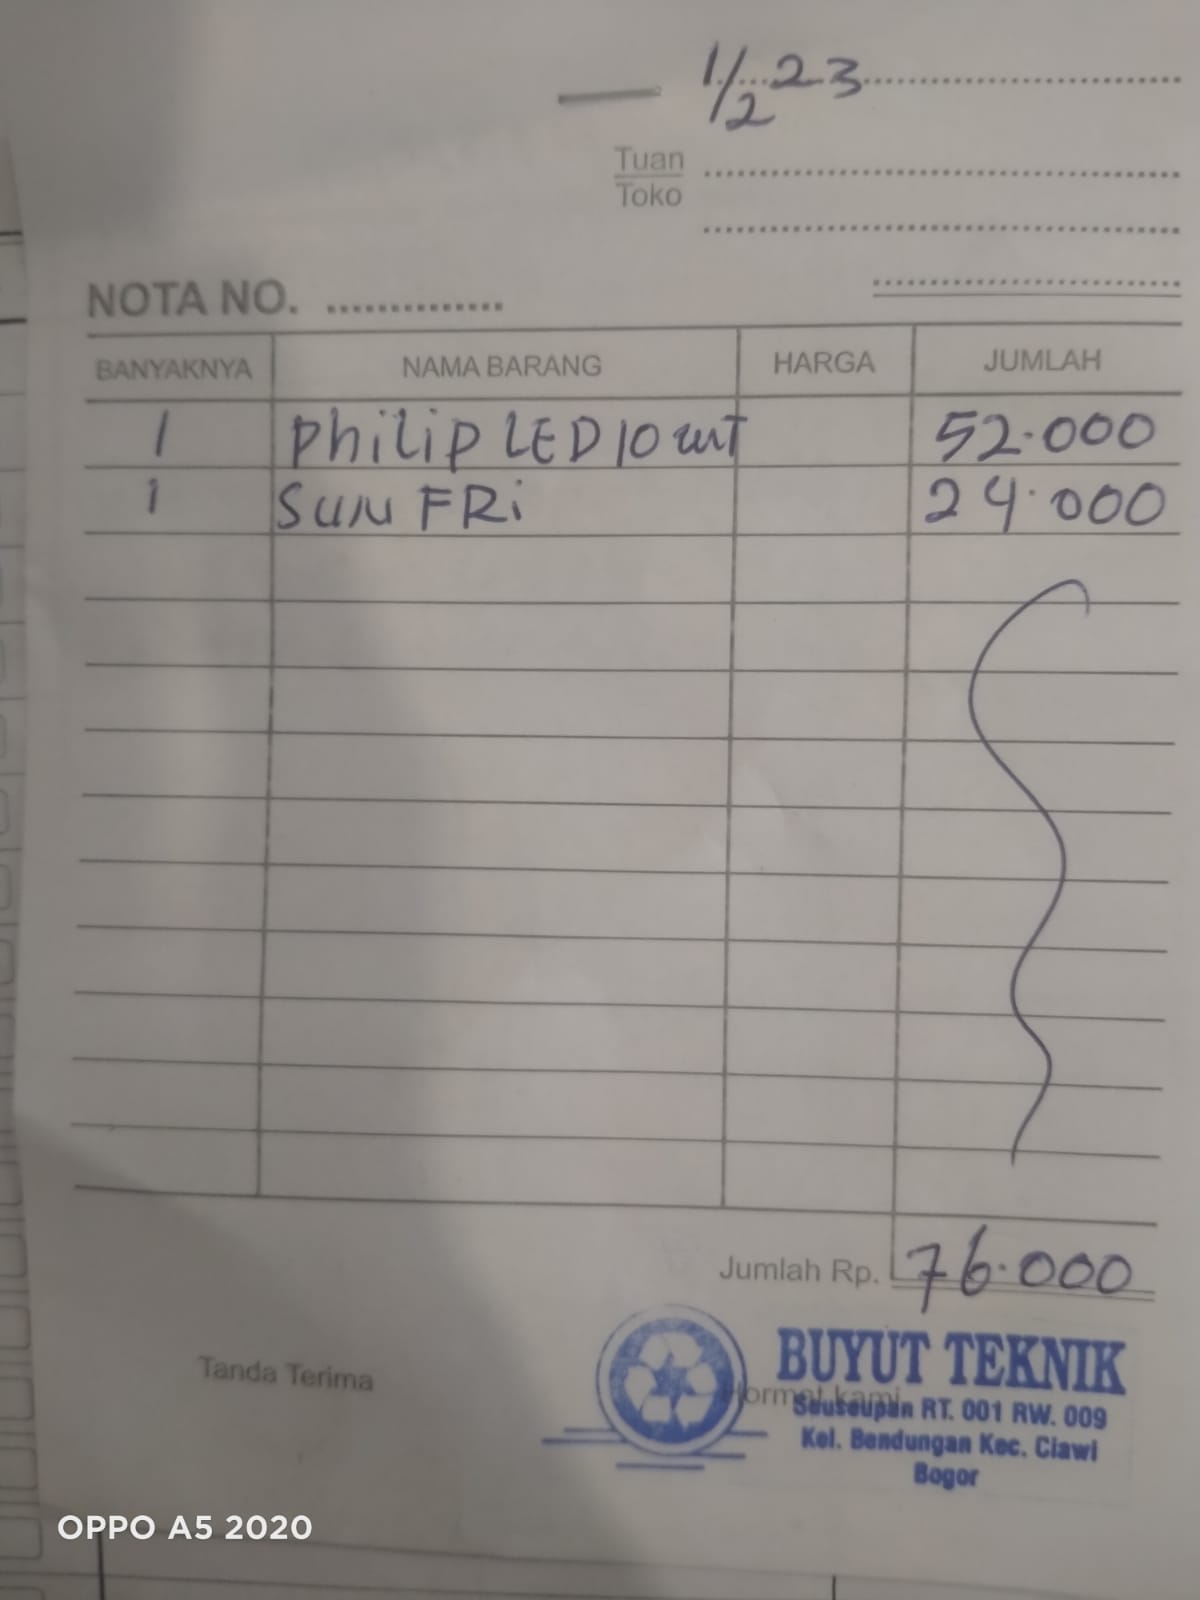 1/2 23
Tuan
Toko
NOTA NO.
BANYAKNYA NAMA BARANG HARGA JUMLAH
1 Philip LED 10 wtT 52.000
1 SUN FRi 24.000
Jumlah Rp. 76.000
Tanda Terima
Hormat kami
BUYUT TEKNIK
Seuseupan RT. 001 RW. 009
Kel. Bendungan Kec. Ciawi
Bogor
OPPO A5 2020